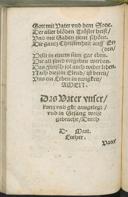 Gott mit Vater vnd dem Sone.
Der aller blöden Tröster heist/
Vnd mit Gaben zirt schöne.
Die gantz Christenheit auff Er-
den/
Helt in einem sinn gar eben.
Hie all sünd vergeben werden.
Das fleisch sol auch wider leben.
Nach diesem Elend/ ist bereit/
Vns ein Leben in ewigkeit/
AMEN.
Das Vater vnser/
kurtz vnd gut ausgelegt/
vnd in Gesang weise
gebracht/ Durch
D. Mart.
Luther.